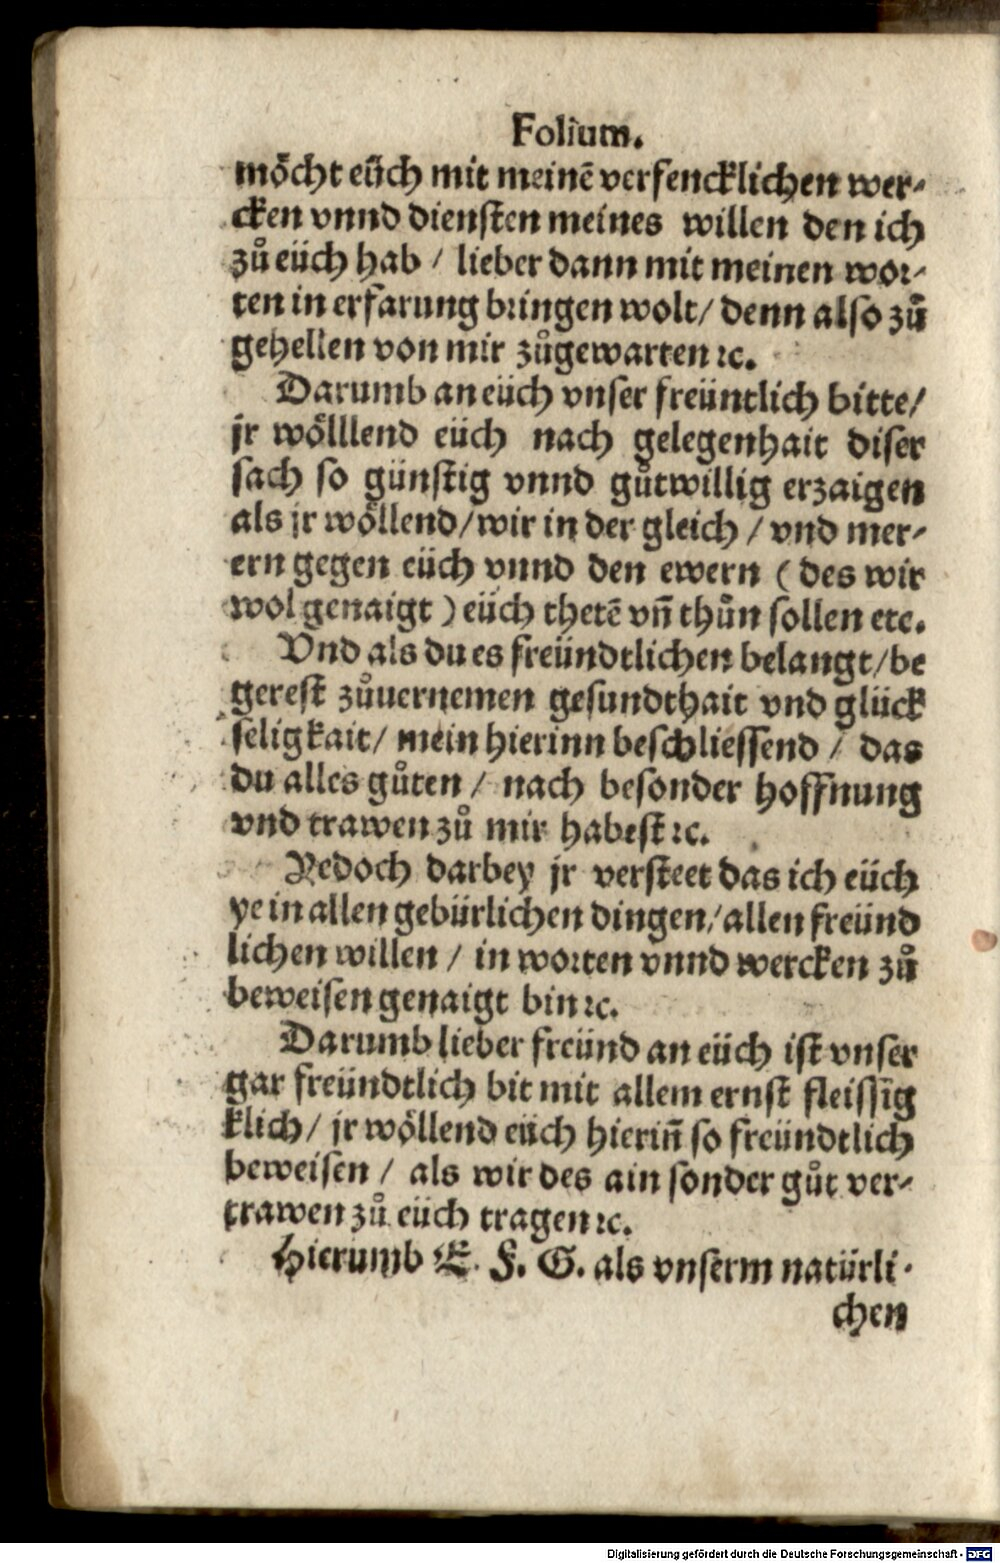 Folium.
möcht eüch mit meinē versencklichen wer-
cken vnnd diensten meines willen den ich
zů eüch hab / lieber dann mit meinen wor-
ten in erfarung bringen wolt / denn also zů
gehellen von mir zůgewarten ꝛc.
Darumb an eüch vnser freüntlich bitte /
jr wölllend eüch nach gelegenhait diser
sach so günstig vnnd gůtwillig erzaigen
als jr wöllend / wir in der gleich / vnd mer-
ern gegen eüch vnnd den ewern ( des wir
wol genaigt ) eüch thetē vn̄ thůn sollen etc.
Vnd als du es freündtlichen belangt / be
gerest zůuernemen gesundthait vnd glück
seligkait / mein hierinn beschliessend / das
du alles gůten / nach besonder hoffnung
vnd trawen zů mir habest ꝛc.
Yedoch darbey jr versteet das ich eüch
ye in allen gebürlichen dingen / allen freünd
lichen willen / in worten vnnd wercken zů
beweisen genaigt bin ꝛc.
Darumb lieber freünd an eüch ist vnser
gar freündtlich bit mit allem ernst fleissig
klich / jr wöllend eüch hierin̄ so freündtlich
beweisen / als wir des ain sonder gůt ver-
trawen zů eüch tragen ꝛc.
Hierumb E. F. G. als vnserm natürli-
chen
Digitalisierung gefördert durch die Deutsche Forschungsgemeinschaft - DFG